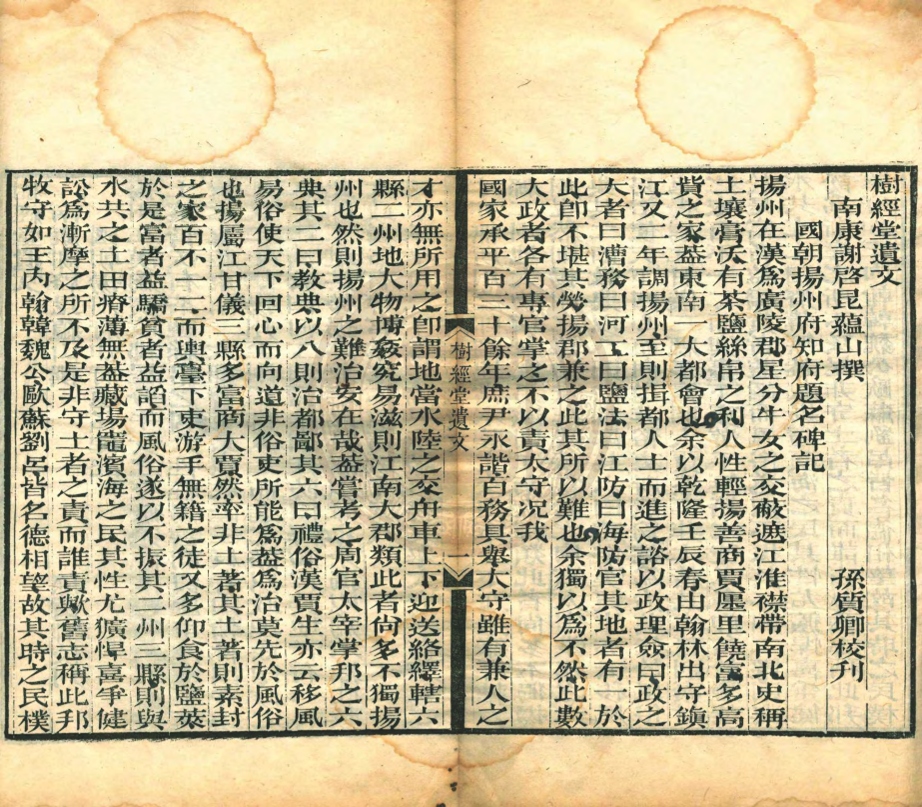 樹經堂遺文
南康謝啓昆蘊山撰　孫質卿校刊
國朝揚州府知府題名碑記
揚州在漢爲廣陵郡星分牛女之交蔽遮江淮襟帶南北史稱
土壤膏沃有茶鹽絲帛之利人性輕揚善商賈鄽里饒富多高
貲之家蓋東南一大都會也余以乾隆壬辰春由翰林出守鎭
江又二年調揚州至則揖都人士而進之諮以政理僉曰政之
大者曰漕務曰河工曰鹽法曰江防曰海防官其地者有一於
此卽不堪其勞揚郡兼之此其所以難也余獨以爲不然此數
大政者各有專官掌之不以責太守况我
國家承平百三十餘年庶尹永諧百務具舉大守雖有兼人之
樹經堂遺文　一
才亦無所用之卽謂地當水陸之交舟車上下迎送絡繹轄六
縣二州地大物博姦宄易滋則江南大郡類此者尙多不獨揚
州也然則揚州之難治安在哉蓋嘗考之周官太宰掌邦之六
典其二曰教典以八則治都鄙其六曰禮俗漢賈生亦云移風
易俗使天下回心而向道非俗吏所能爲蓋爲治莫先於風俗
也揚屬江甘儀三縣多富商大賈然率非土著其土著則素封
之家百不一二而輿臺下吏游手無籍之徒又多仰食於鹽莢
於是富者益驕貧者益謟而風俗遂以不振其二州三縣則與
水共之土田瘠薄無蓋藏場竈濱海之民其性尤獷悍喜爭健
訟爲漸摩之所不及是非守土者之責而誰責歟舊志稱此邦
牧守如王内翰韓魏公歐蘇劉呂皆名德相望故其時之民樸